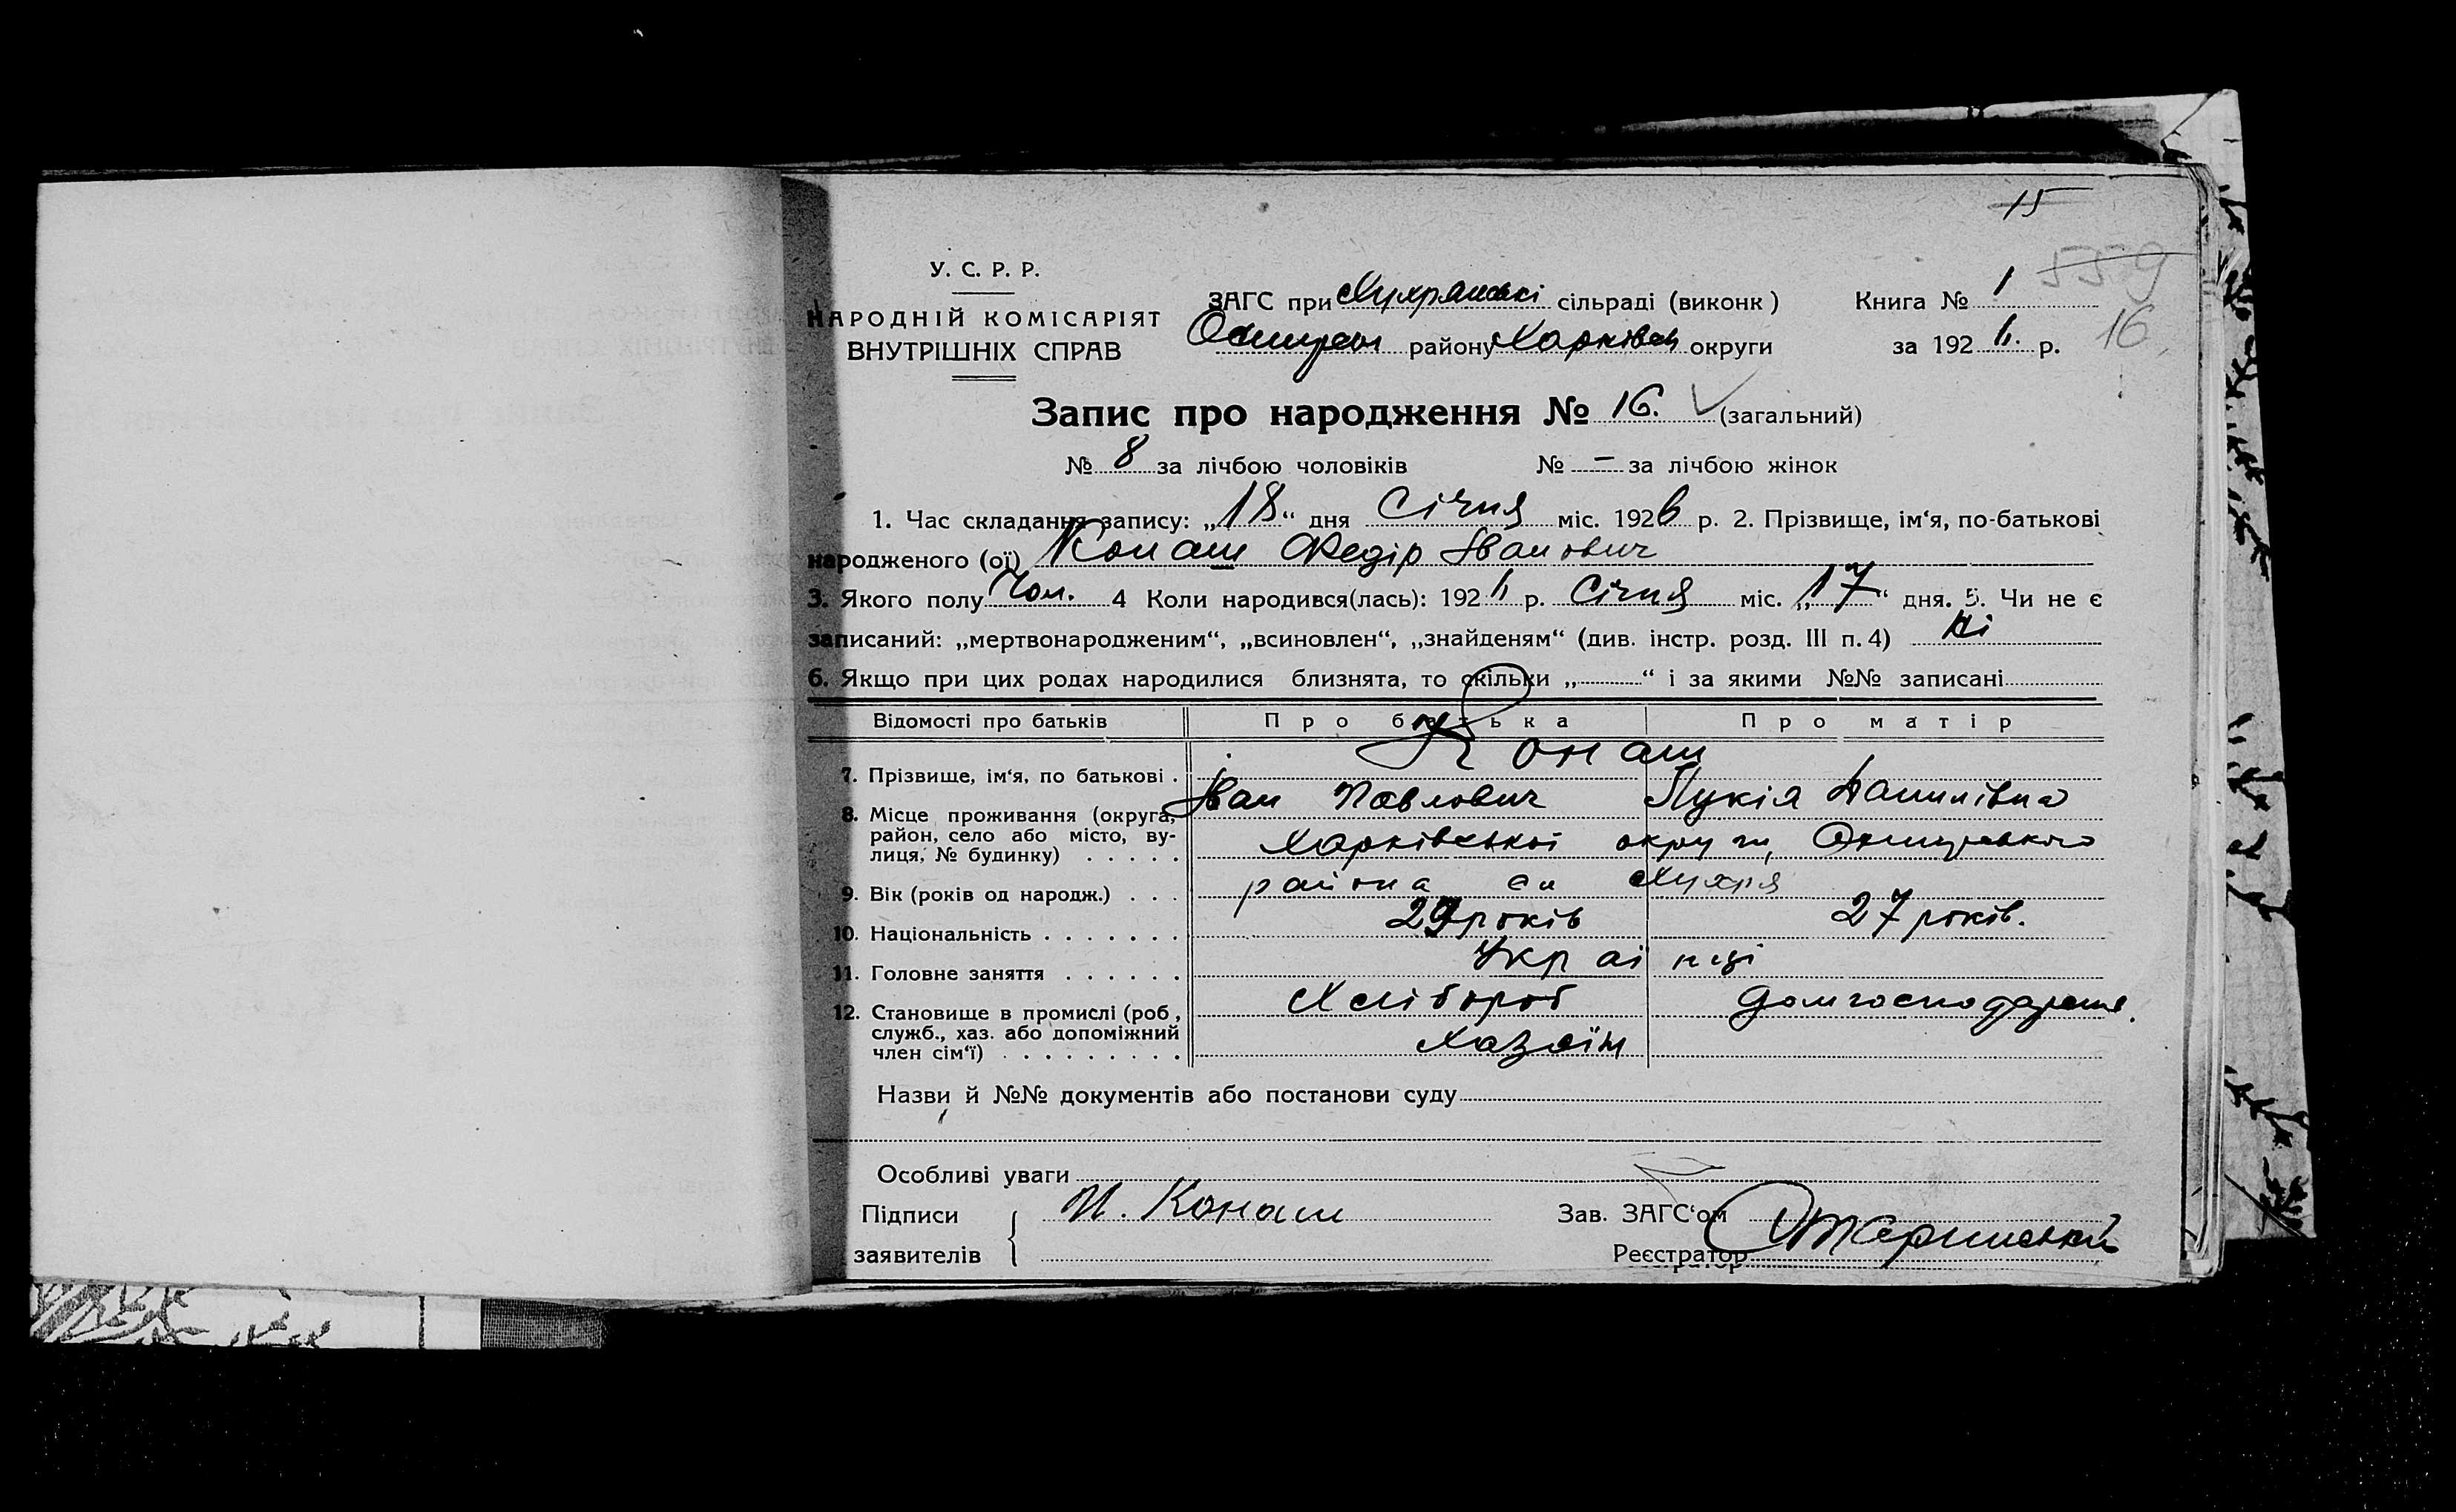 15
559
У. С. Р. Р.
НАРОДНІЙ КОМІСАРІЯТ
ВНУТРІШНІХ СПРАВ
ЗАГС при сільраді (виконк)
району Харківськ округи
Книга № 1
за 1926. р.
16
Запис про народження № 16. (загальний)
№ 8 за лічбою чоловіків № — за лічбою жінок
1. Час складання запису: „18“ дня Січня міс. 1926 р. 2. Прізвище, ім‘я, по-батькові
народженого (ої) Конаш Федір Іванович
3. Якого полу Чол. 4 Коли народився(лась): 1926 р. Січня міс. „17“ дня. 5. Чи не є
записаний: „мертвонародженим“, „всиновлен“, „знайденям“ (див. інстр. розд. III п. 4) Ні
6. Якщо при цих родах народилися близнята, то скільки „ “ і за якими №№ записані
Відомості про батьків Про батька Про матір
Конаш
7. Прізвище, ім‘я, по батькові .
Іван Павлович Лукія Данилівна
8. Місце проживання (округа, район, село або місто, ву-
лиця, № будинку) . . . . .
Харківської округи,
района Хухря
9. Вік (років од народж.) . . .
29 років 27 років.
10. Національність . . . . . . .
Українці
11. Головне заняття . . . . . .
Хлібороб
12. Становище в промислі (роб, служб., хаз. або допоміжний
член сім‘ї) . . . . . . . . .
Хазяїн
Назви й №№ документів або постанови суду
Особливі уваги
Підписи
заявителів
И. Конаш
Зав. ЗАГС‘ом
Реєстратор